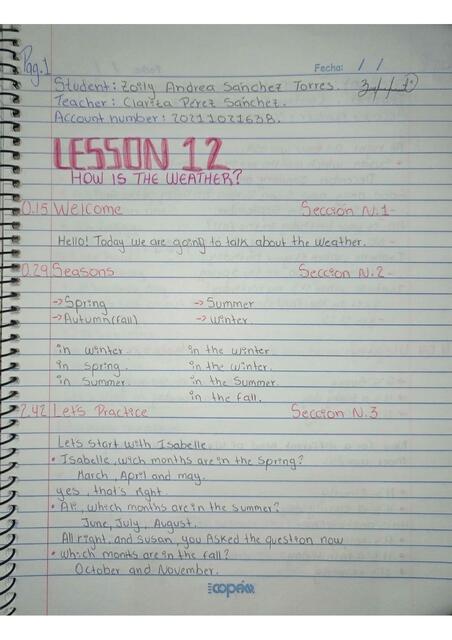 Pag. 1
Fecha: / /
Student: Zoily Andrea Sanchez Torres.
Teacher: Clarita Perez Sanchez.
Account number: 20211021638.
LESSON 12
HOW IS THE WEATHER?
0.15 Welcome Seccion N.1-
Hello! Today we are going to talk about the weather.
0.29 Seasons Seccion N.2-
→Spring →Summer
→Autumn(fall) →Winter
in winter in the winter
in spring. in the winter.
in Summer. in the Summer.
in the fall.
2.42 Lets Practice Seccion N.3
Lets start with Isabelle
• Isabelle, wich months are in the Spring?
March, April and may.
yes, that's right
• Ali, which months are in the summer?
June, July, August.
All right, and susan, you Asked the question now
• which months are in the fall?
October and November.
copán